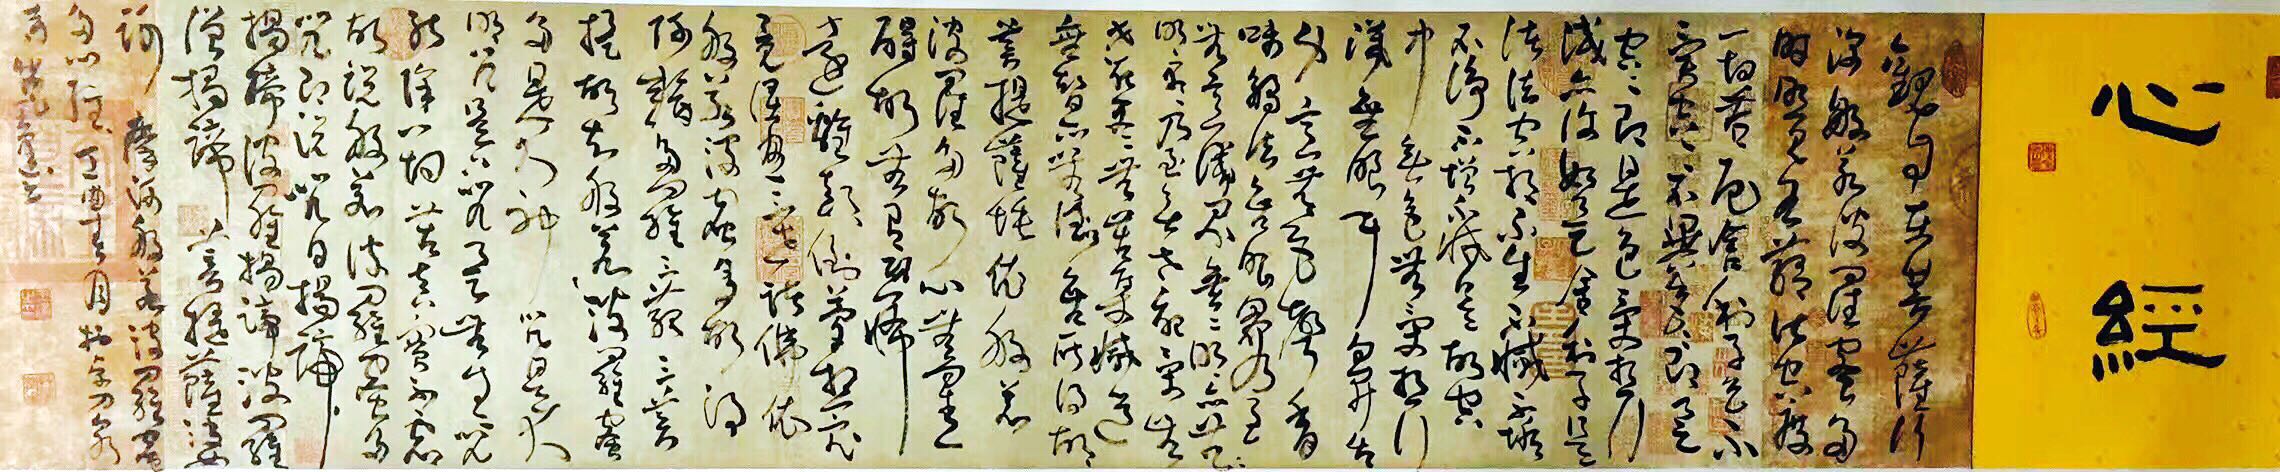 心經
觀自在菩薩行
深般若波羅蜜多
時照見五蘊皆空度
一切苦厄舍利子色不
異空空不異色色即是
空空即是色受想行
識亦復如是舍利子是
諸法空相不生不滅不垢
不淨不增不減是故空
中無色無受想行
識無眼耳鼻舌
身意無色聲香
味觸法無眼界乃至
無意識界無無明亦無
明盡乃至無老死亦
老死盡無苦集滅道
無智亦無得無所得故
菩提薩埵依般若
波羅多故心無罣
礙故無有恐怖
遠離顛倒夢想究
竟涅槃三世諸佛依
般若波羅蜜多故得
阿耨多羅三藐三菩
提故知般若波羅蜜
多是大神咒是大
明咒是無上咒是無等咒
能除一切苦真實不虛
故說般若波羅蜜多
咒即說咒曰揭諦
揭諦波羅揭諦波羅
僧揭諦菩提薩婆
訶 摩訶般若波羅蜜
多心經 月